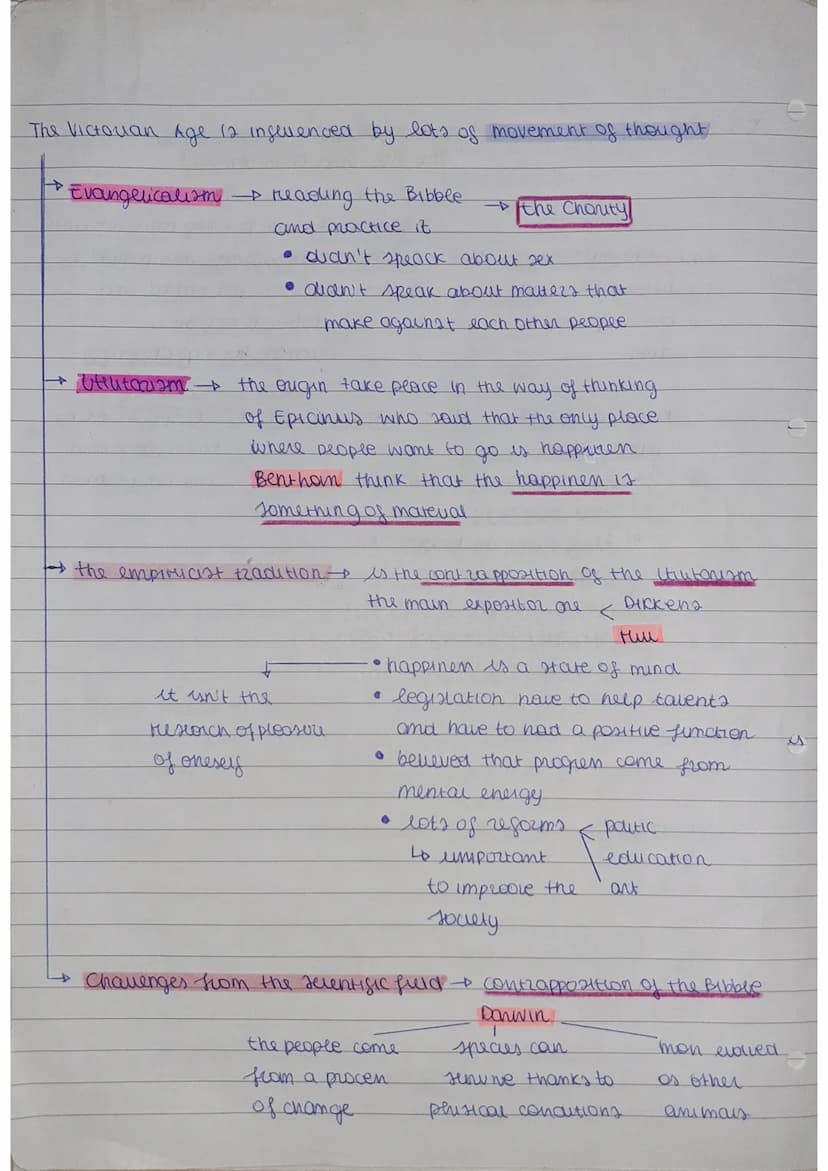 The Victorian Age is influenced by lots of movement of thought
→ Evangelicalism → reading the Bibble → the Charity
and practice it
• didn't speack about sex
• didn't speak about matters that
make against each other people
→ Utilitarism → the origin take peace in the way of thinking
of Epicurus who said that the only place
where people want to go is happiness
Bentham think that the happiness is
something of material
→ the empiricist tradition → is the contrapposition of the Utilitarism
the main expositor are < Dickens
Mill
• happiness is a state of mind
it isn't the • legislation have to help talents
research of pleasure and have to had a positive function is
of oneself • believed that progress come from
mental energy
• lots of reforms < politic
↳ important education
to improove the art
society
→ Challenges from the scientific field → contrapposition of the Bibble
Darwin
the people come species can man evolved
from a process survive thanks to as other
of change phisical conditions animals